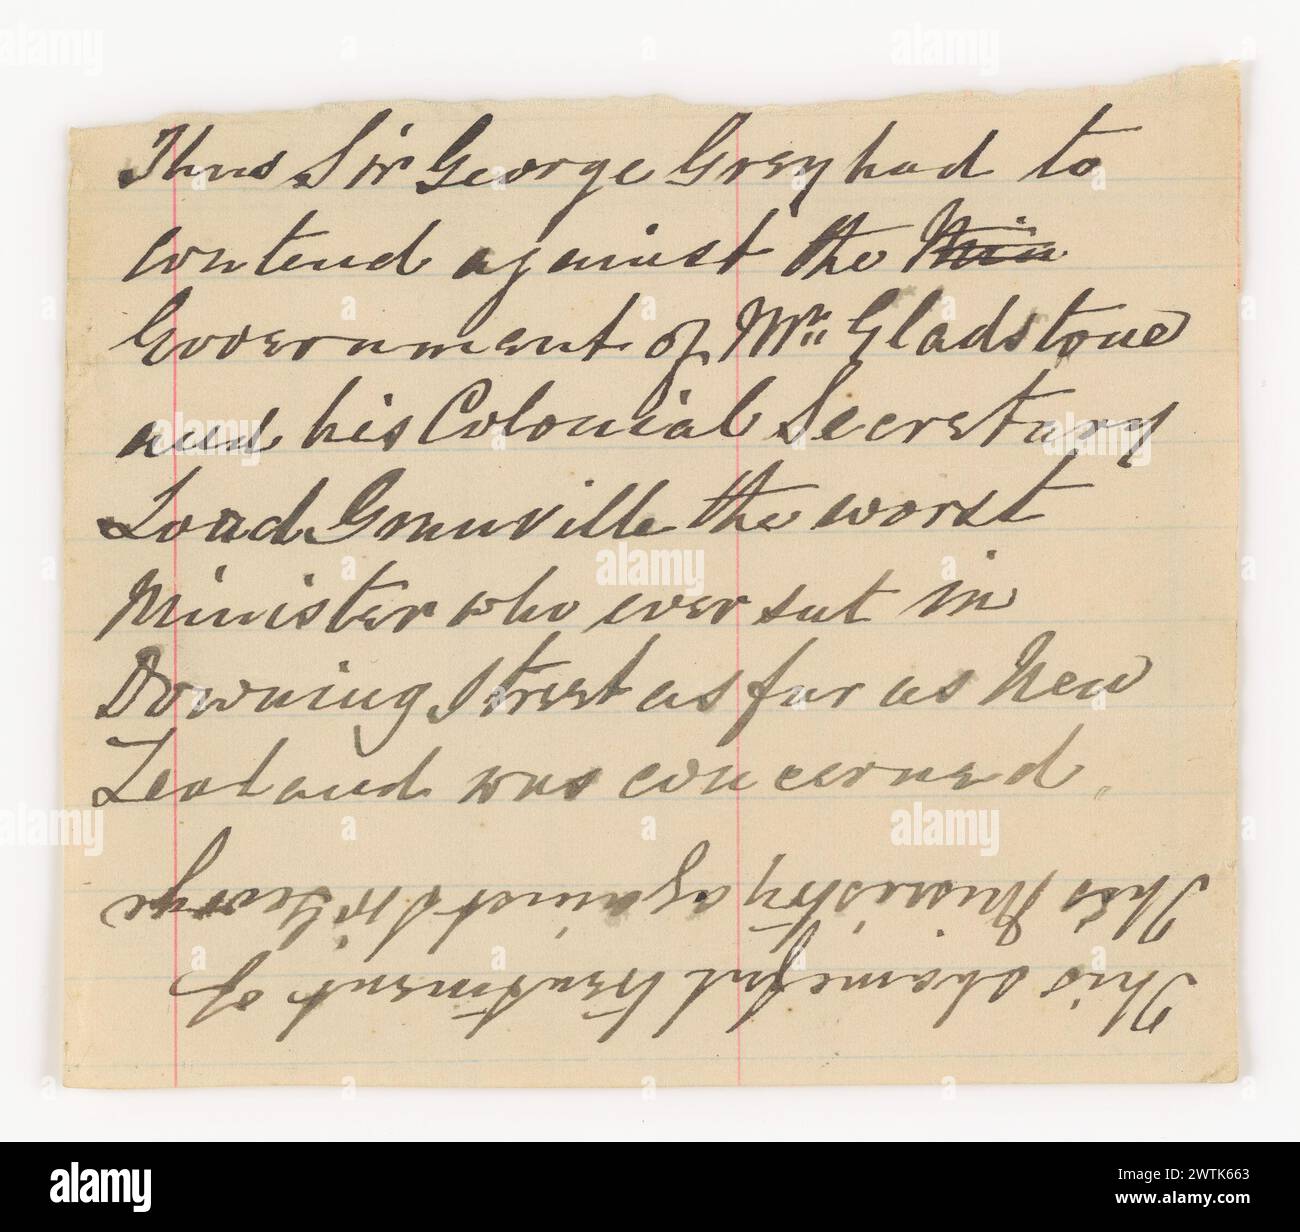 Thus Sir George Grey had to
contend against the Min
Government of Mr. Gladstone
and his Colonial Secretary
Lord Granville the worst
Minister who ever sat in
Downing Street as far as New
Zealand was concerned.
This shameful treatment of
This Ministry against Sir George
alamy
Image ID: 2WTK663
www.alamy.com